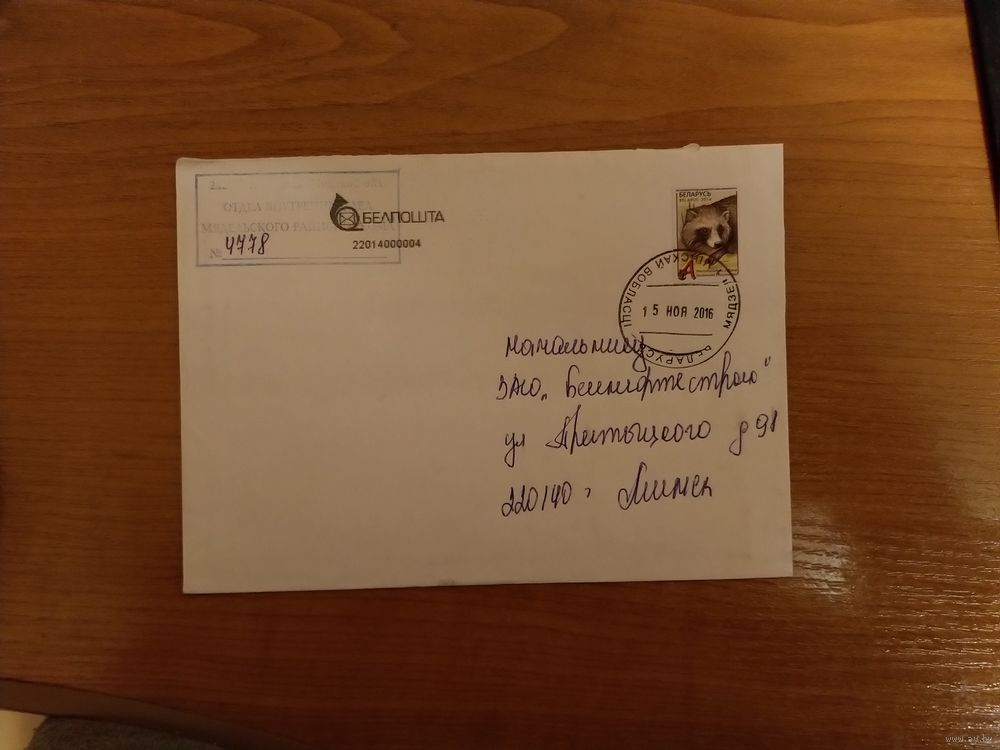 ОТДЕЛ ВНУТРЕННИХ ДЕЛ
МЯДЕЛЬСКОГО
№ 4778
БЕЛПОШТА
22014000004
БЕЛАРУСЬ
BELARUS 2014
A
МЯДЗЕЛ ВОБЛАСЦІ БЕЛАРУСЬ
15 НОЯ 2016
начальнику
ЗАО „Белнефтестрой"
ул Притыцкого д 91
220140, Минск
www.ay.by